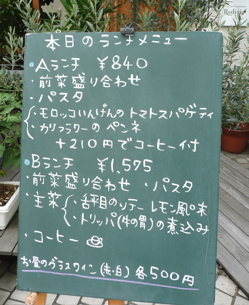 本日のランチメニュー
・Aランチ ¥840
・前菜盛り合わせ
・パスタ
モロッコいんげんのトマトスパゲティ
カリフラワーのペンネ
+210円でコーヒー付
・Bランチ ¥1,575
・前菜盛り合わせ ・パスタ
・主菜 舌平目のソテーレモン風味
・トリッパ(牛の胃)の煮込み
・コーヒー
お昼のグラスワイン(赤・白) 各500円